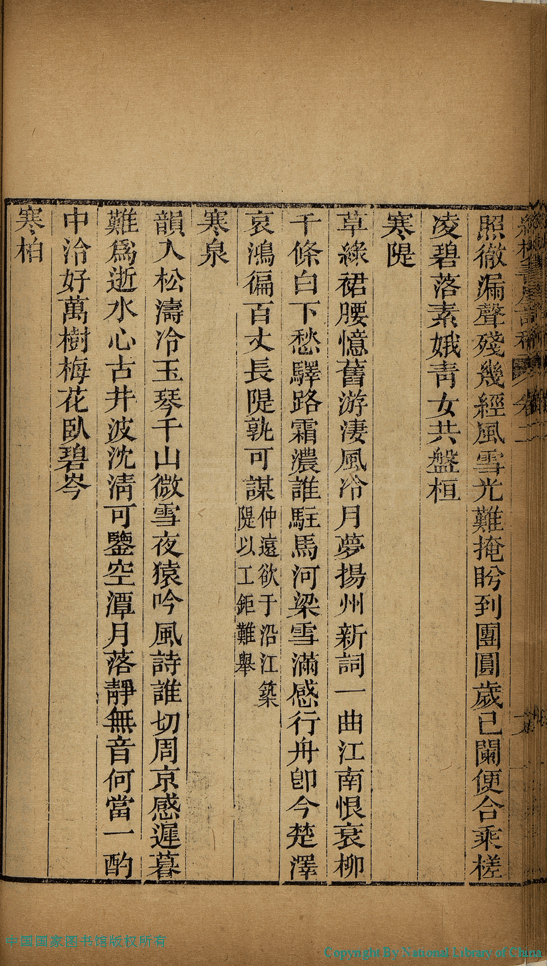 照徹漏聲殘幾經風雪光難掩盼到團圓歲已闌便合乘槎
凌碧落素娥靑女共盤桓
寒隄
草綠裙腰憶舊游淒風冷月夢揚州新詞一曲江南恨衰柳
千條白下愁驛路霜濃誰駐馬河梁雪滿感行舟卽今楚澤
哀鴻徧百丈長隄孰可謀仲遠欲于沿江築
隄以工鉅難舉
寒泉
韻入松濤冷玉琴千山微雪夜猿吟風詩誰切周京感遲暮
難爲逝水心古井波沈淸可鑒空潭月落靜無音何當一酌
中泠好萬樹梅花臥碧岑
寒柏
中国国家图书馆版权所有
Copyright By National Library of China